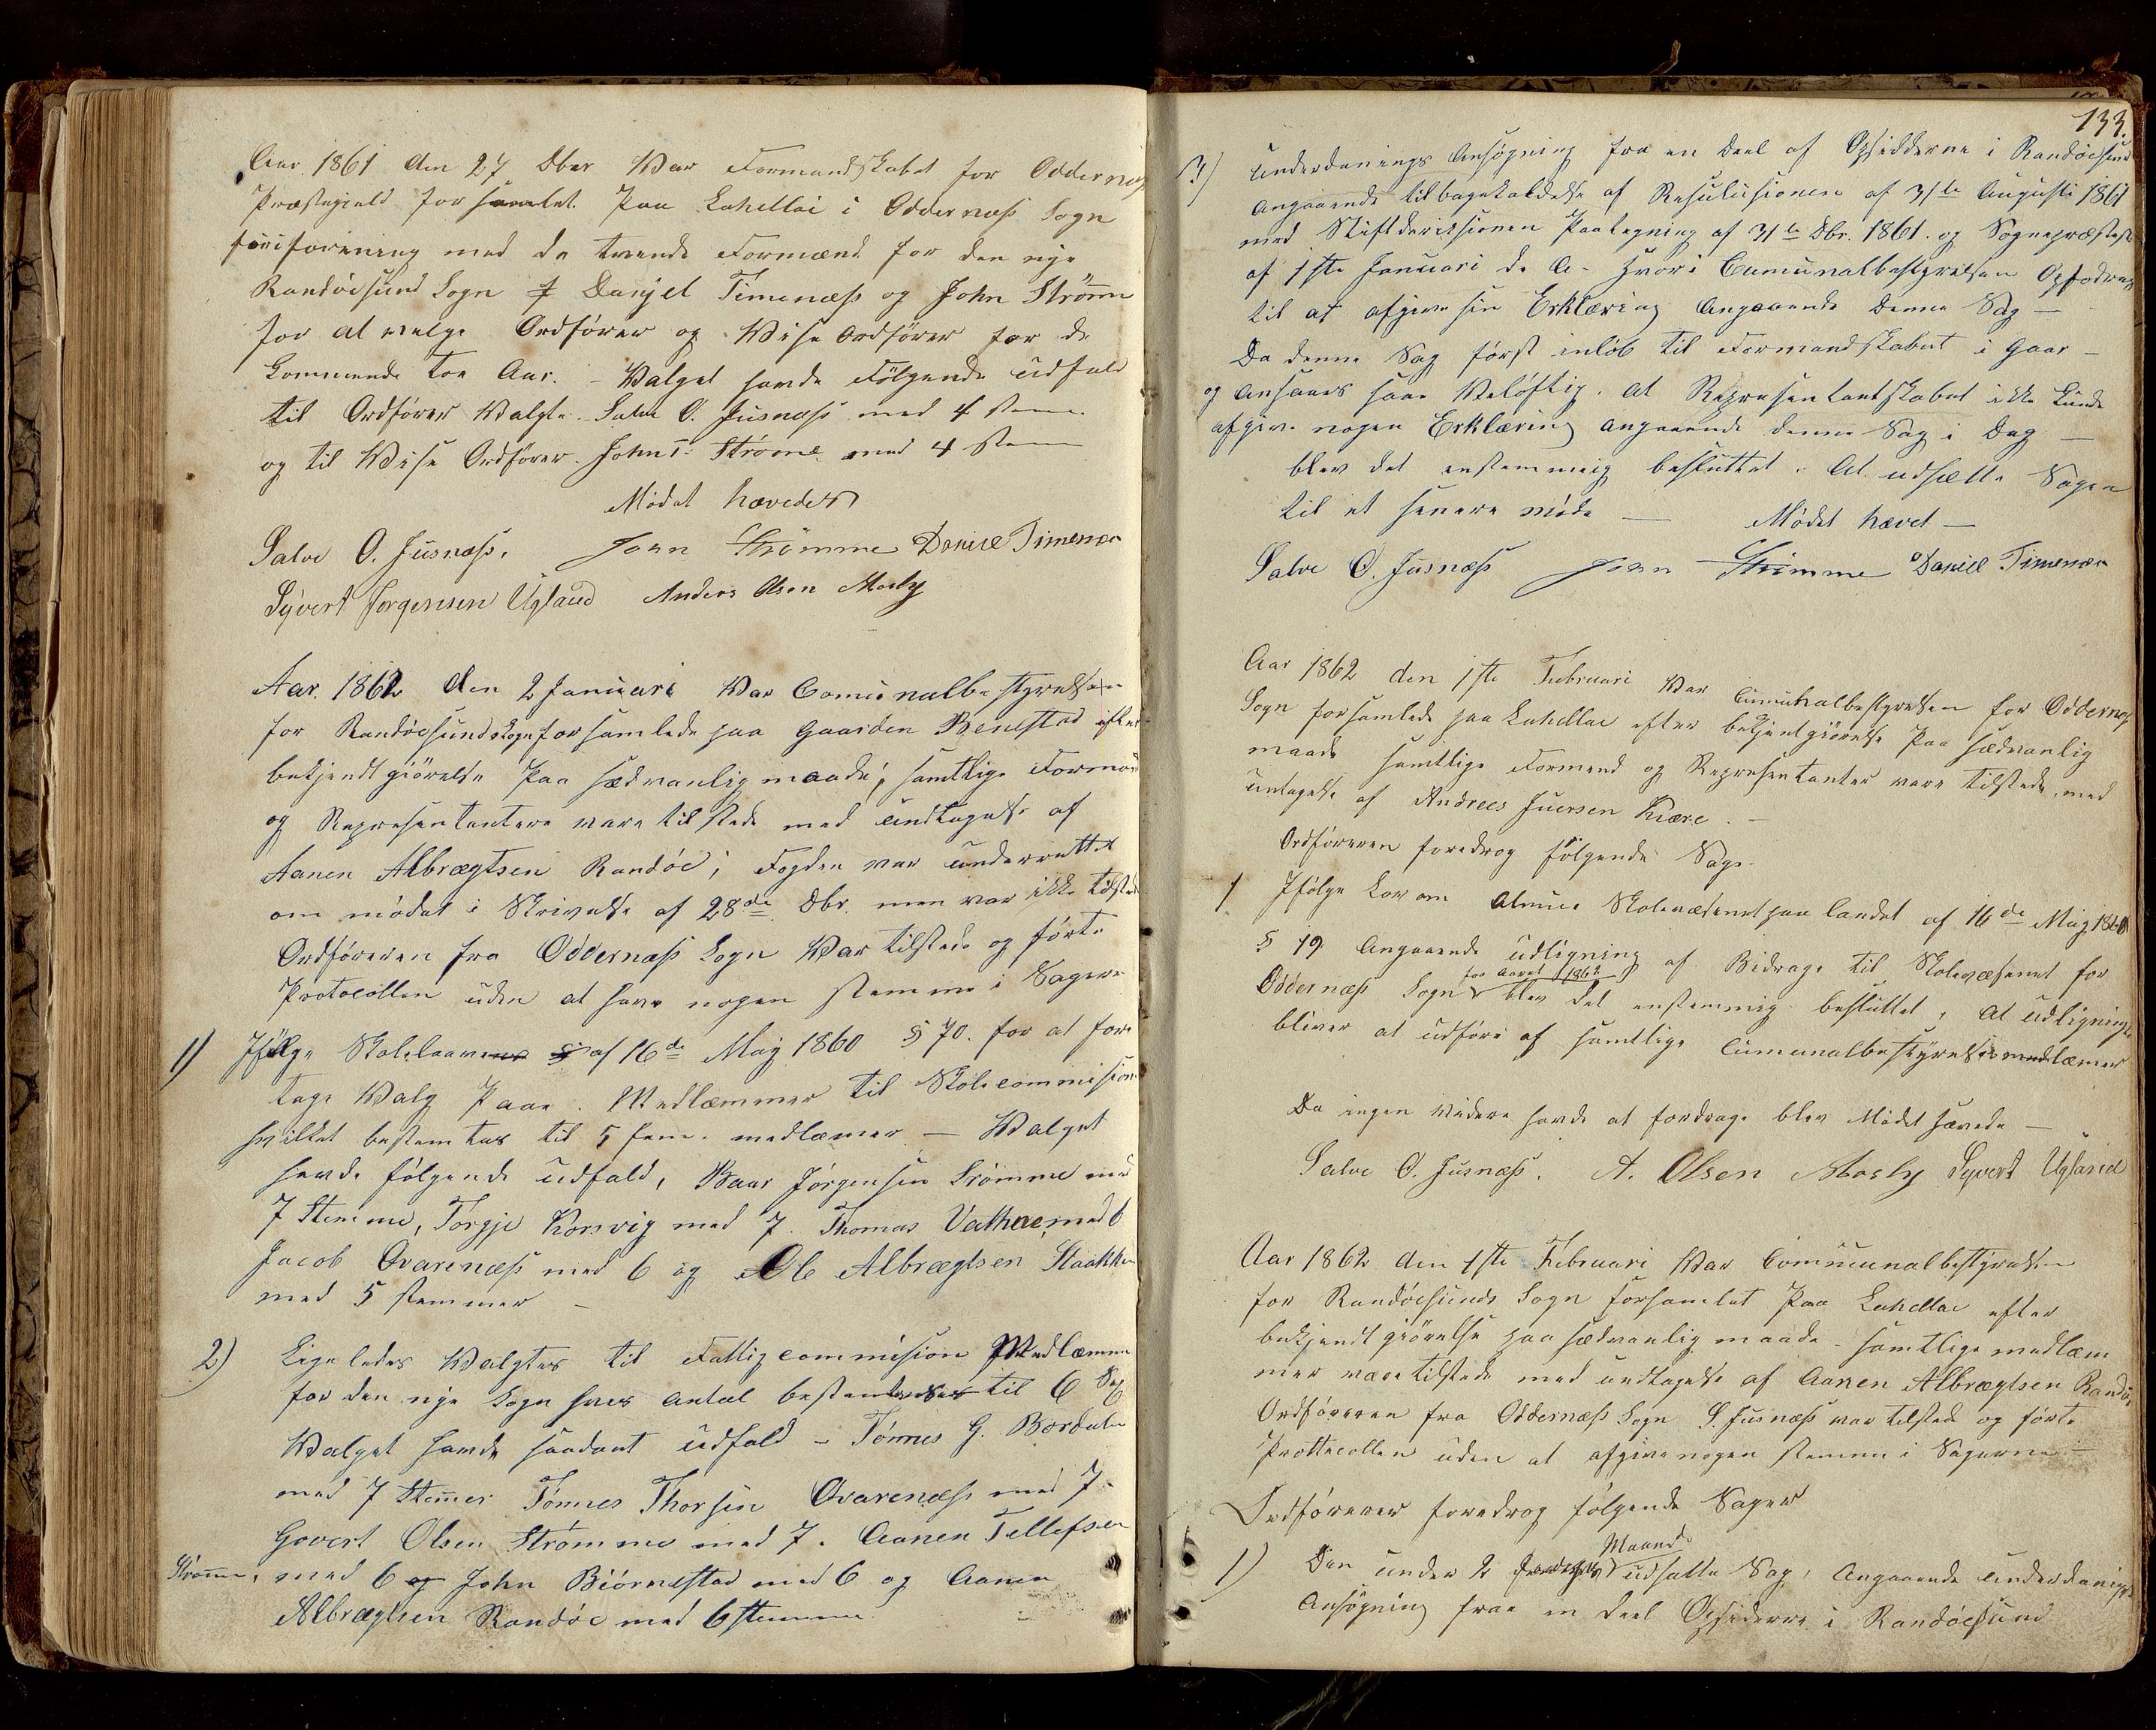 Aar 1861 den 27 Dbr War Formandskabet for Oddernæs
Præstegjeld forsamlet Paa Lahellai i Oddernæs Sogn
foreening med de tvende Formænd for den nye
Randøesund Sogn Danjel Timenæs og John Strøm̅e
for at velge Ordfører og Wise Ordfører for de
kommende toe Aar. - Walget havde Følgende Udfald
til Ordfører Walgte Salve O. Jusnæs med 4 stem̅
og til Wise Ordfører John Strøme med 4 stem̅
Mødet hævedes
Salve O. Jusnæs, John Strømme Daniel Timenæs
Syvert Jørgensen Ugland Anders Olsen Mosby
Aar 1862 den 2 Januari War Comunalbestyrelsen
for Randøesund Sogn forsamlede paa Gaarden Benestad efter
bekjendtgiørelse Paa sædvanlig maade, samtlige Form
og Representantere vare tilstede med undtagelse af
Aanen Albrægtsen Randøe; Fogden var underrettet
om mødet i Skrivelse af 28de Dbr. men var ikke tilsted
Ordføreren fra Oddernæs Sogn War tilstede og førte
Protocollen uden at have nogen stemme i Sagerne
1) Ifølge Skoleloven af 16de Maj 1860 § 70. for at fore
tage Walg Paa Medlæmmer til Skolecommision
hvilket bestemtes til 5 fem medlæmer — Walget
havde følgende udfald, Baar Jørgensen Strømme med
7 Stemme, Torgje Korsvig med 7. Thomas Vatne med 6
Jacob Qvarenæs med 6 og Ole Albrægtsen Staakken
med 5 stemmer -
2) Ligeledes Walgtes til Fattigcommision Medlæmer
for den nye Sogn hvis Antal bestemtes til 6 Sex
Walget havde saadant udfald - Tønnes G. Bordalen
med 7 Stem̅er Tønnes Thorsen Qvarenæs med 7.
Govert Olsen Strømme med 7. Aanen Tellefsen
Strøm̅e, med 6 og John Biørnestad med 6 og Aanen
Albrægtsen Randøe med 6 stemmer
133.
3) Underdanings Ansøgning fra en Deel af Opsidderne i Randøesund
angaaende tilbagekaldelse af Resulusionen af 31te Augusti 1861
med Stiftderiksionen Paategning af 31te Dbr. 1861. og Sognepræsten
af 1ste Januari d. A. hvori Cumunalbestyrelsen Opfodres
til at afgive sin Erklæring Angaaende denne Sag —
Da denne Sag først inløb til Formandskabet i Gaar -
og ansaaes saa Veløftig at Representantskabet ikke kunde
afgive nogen Erklæring angaaende denne Sag i Dag —
blev det enstemmig besluttet, At udsætte Sagen
til et senere møde — Mødet hævet —
Salve O. Jusnæs John Strømme Daniel Timenæs
Aar 1862 den 1ste Februari War Cumunalbestyrelsen for Oddernæs
Sogn forsamlede paa Lahellae efter bekjentgiørelse Paa sædvanlig
maade samtlige Formend og Representanter vare tilstede, med
untagelse af Andrees Juersen Kiære. -
Ordføreren foredrog følgende Sage.
1 Ifølge Lov om Almue Skolevæsenet paa landet af 16de Maj 1860
§ 19 Angaaende Udligning af Bidrage til Skolevæsenet for
for Aaret 1862
Oddernæs Sogn blev det enstemmig besluttet, At udligning
bliver at udføre af samtlige Cumunalbestyrelses medlæmer
Da ingen videre havde at fordrage blev Mødet hævede —
Salve O. Jusnæs. A. Olsen Mosby Syvert Ugland
Aar 1862 den 1ste Februari War Communalbestyrelsen
for Randøesunds Sogn forsamlet Paa Lahellae efter
bekjendtgiørelse paa sædvanlig maade - samtlige medlæm
mer være tilstede med undtagelse af Aanen Albrægtsen Randø,
Ordføreren fra Oddernæs Sogn S. Jusnæs var tilstede og førte
Prottecollen uden at afgive nogen stemme i Sagerne —
Ordføreren foredrog følgende Sager
Maaned
1) Den under 2 udsatte Sag, Angaaende underdanigste
Ansøgning fraa en deel Opsiderne i Randøesund